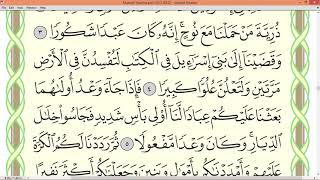 ذُرِّيَّةَ مَنْ حَمَلْنَا مَعَ نُوحٍ ۚ إِنَّهُۥ كَانَ عَبْدًا شَكُورًا ٣
وَقَضَيْنَآ إِلَىٰ بَنِىٓ إِسْرَٰٓءِيلَ فِى ٱلْكِتَٰبِ لَتُفْسِدُنَّ فِى ٱلْأَرْضِ
مَرَّتَيْنِ وَلَتَعْلُنَّ عُلُوًّا كَبِيرًا ٤ فَإِذَا جَآءَ وَعْدُ أُولَىٰهُمَا
بَعَثْنَا عَلَيْكُمْ عِبَادًا لَّنَآ أُو۟لِى بَأْسٍ شَدِيدٍ فَجَاسُوا۟ خِلَٰلَ
ٱلدِّيَارِ ۚ وَكَانَ وَعْدًا مَّفْعُولًا ٥ ثُمَّ رَدَدْنَا لَكُمُ ٱلْكَرَّةَ
عَلَيْهِمْ وَأَمْدَدْنَٰكُم بِأَمْوَٰلٍ وَبَنِينَ وَجَعَلْنَٰكُمْ أَكْثَرَ نَفِيرًا